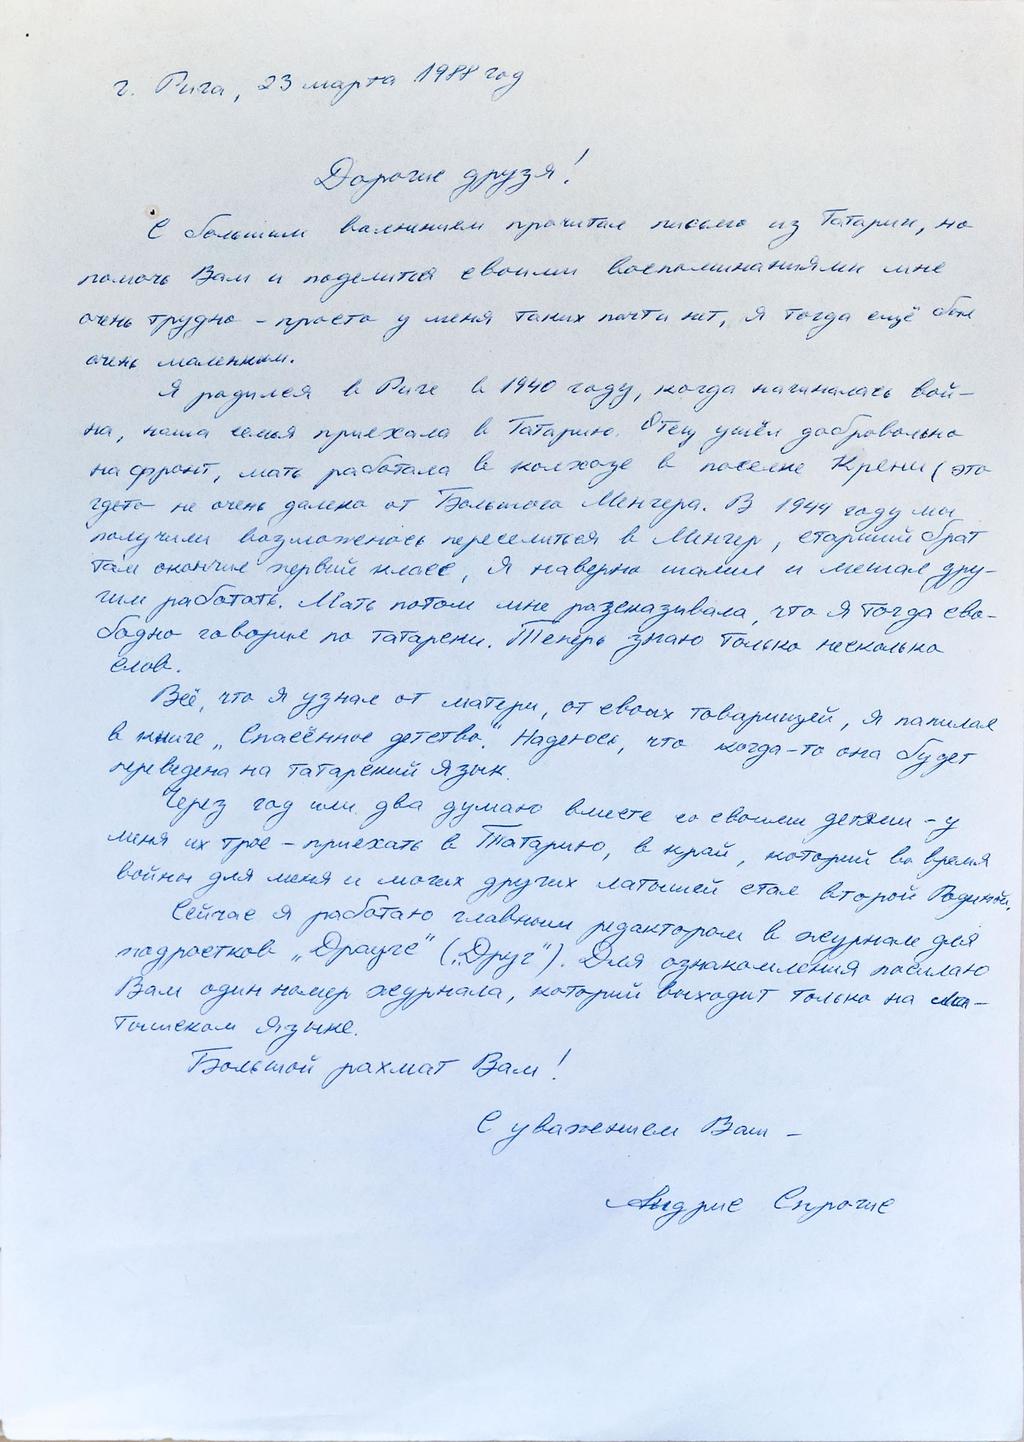 г. Рига, 23 марта 1988 год
Дорогие друзья!
С большим волнением прочитал письмо из Татарии, но
помочь Вам и поделится своими воспоминаниями мне
очень трудно – просто у меня таких почти нет, я тогда ещё был
очень маленьким.
Я родился в Риге в 1940 году, когда начиналась вой-
на, наша семья приехала в Татарию. Отец ушёл добровольно
на фронт, мать работала в колхозе в поселке Крени (это
гдето не очень далеко от Большого Менгера. В 1944 году мы
получили возможнось переселиться в Менгер, старший брат
там окончил первий класс, я наверно шалил и мешал дру-
гим работать. Мать потом мне разсказивала, что я тогда сво-
бодно говорил по татарски. Теперь знаю только несколько
слов.
Всё, что я узнал от матери, от своих товарищей, я написал
в книге „Спасённое детство." Надеюсь, что когда-то она будет
переведена на татарский язык.
Через год или два думаю вместе со своими детями – у
меня их трое – приехать в Татарию, в край, который во время
войны для меня и могих других латышей стал второй Родиной.
Сейчас я работаю главным редактором в журнале для
подростков „Драугс" („Друг"). Для ознакомления посилаю
Вам один номер журнала, который выходит только на ла-
тышском языке.
Большой рахмат Вам!
С уважением Ваш –
Андрис Спрогис